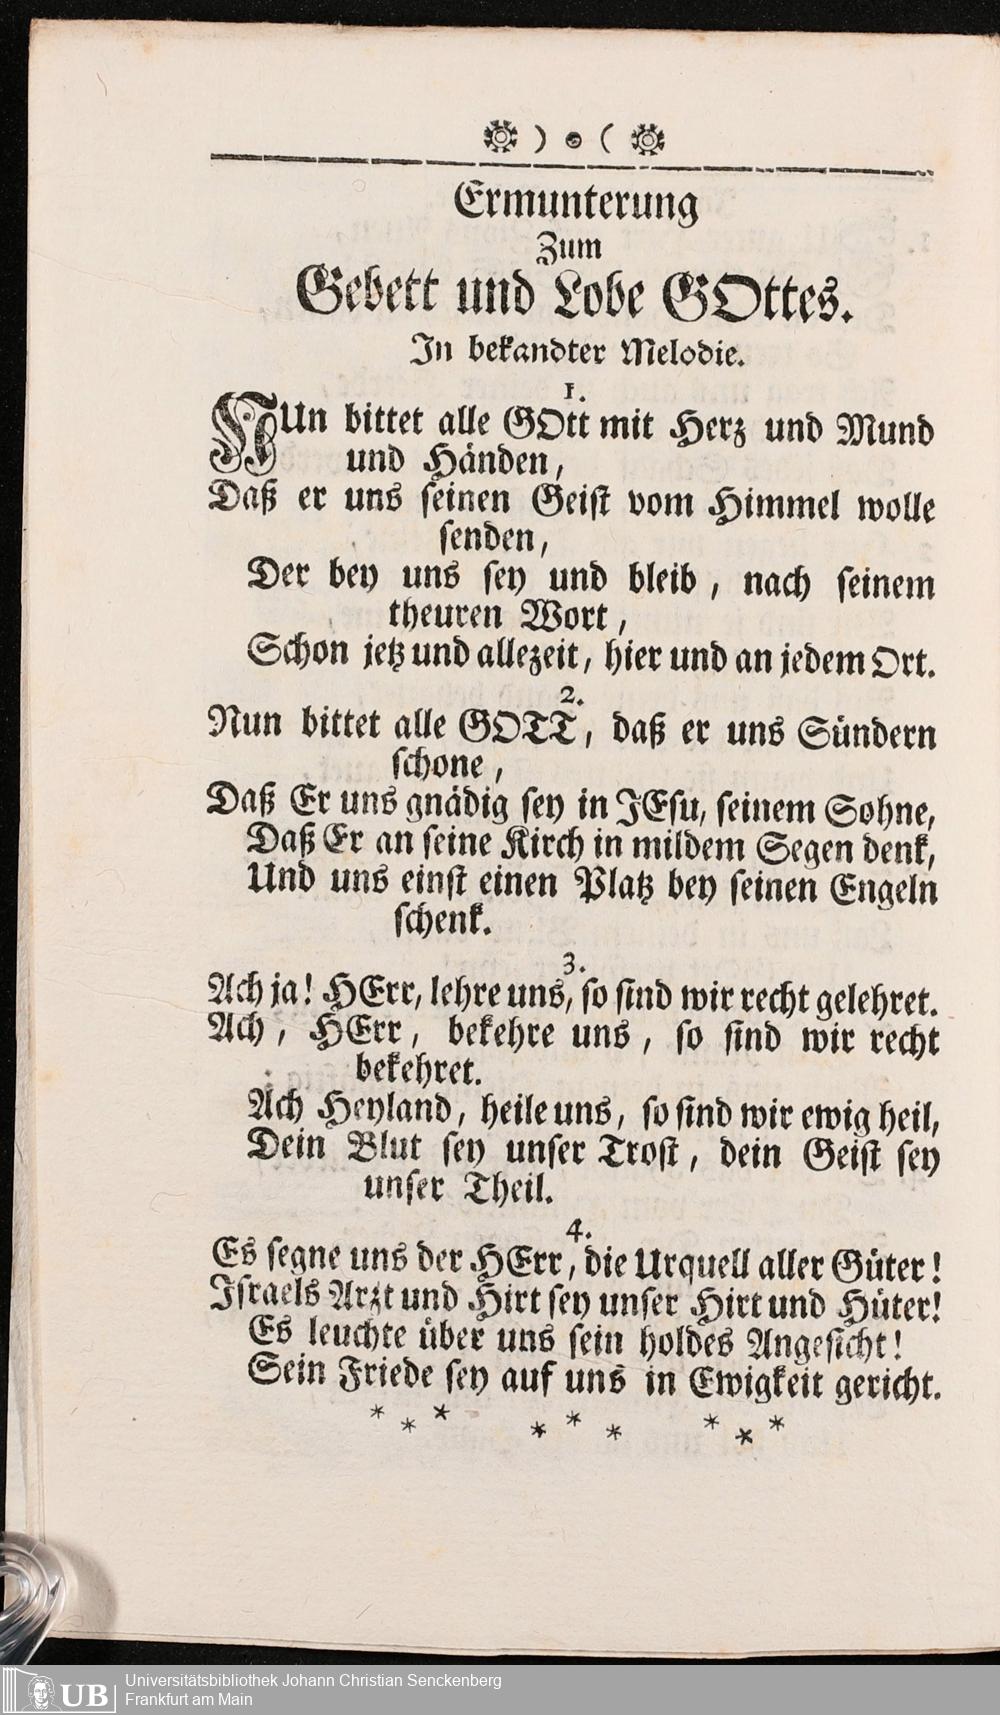 ❁ ) o ( ❁
Ermunterung
Zum
Gebett und Lobe GOttes.
In bekandter Melodie.
1.
NUn bittet alle GOtt mit Herz und Mund
und Händen,
Daß er uns seinen Geist vom Himmel wolle
senden,
Der bey uns sey und bleib, nach seinem
theuren Wort,
Schon jetz und allezeit, hier und an jedem Ort.
2.
Nun bittet alle GOTT, daß er uns Sündern
schone,
Daß Er uns gnädig sey in JEsu, seinem Sohne,
Daß Er an seine Kirch in mildem Segen denk,
Und uns einst einen Platz bey seinen Engeln
schenk.
3.
Ach ja! HErr, lehre uns, so sind wir recht gelehret.
Ach, HErr, bekehre uns, so sind wir recht
bekehret.
Ach Heyland, heile uns, so sind wir ewig heil,
Dein Blut sey unser Trost, dein Geist sey
unser Theil.
4.
Es segne uns der HErr, die Urquell aller Güter!
Israels Arzt und Hirt sey unser Hirt und Hüter!
Es leuchte über uns sein holdes Angesicht!
Sein Friede sey auf uns in Ewigkeit gericht.
* * * * * * * * *
UB Universitätsbibliothek Johann Christian Senckenberg
Frankfurt am Main